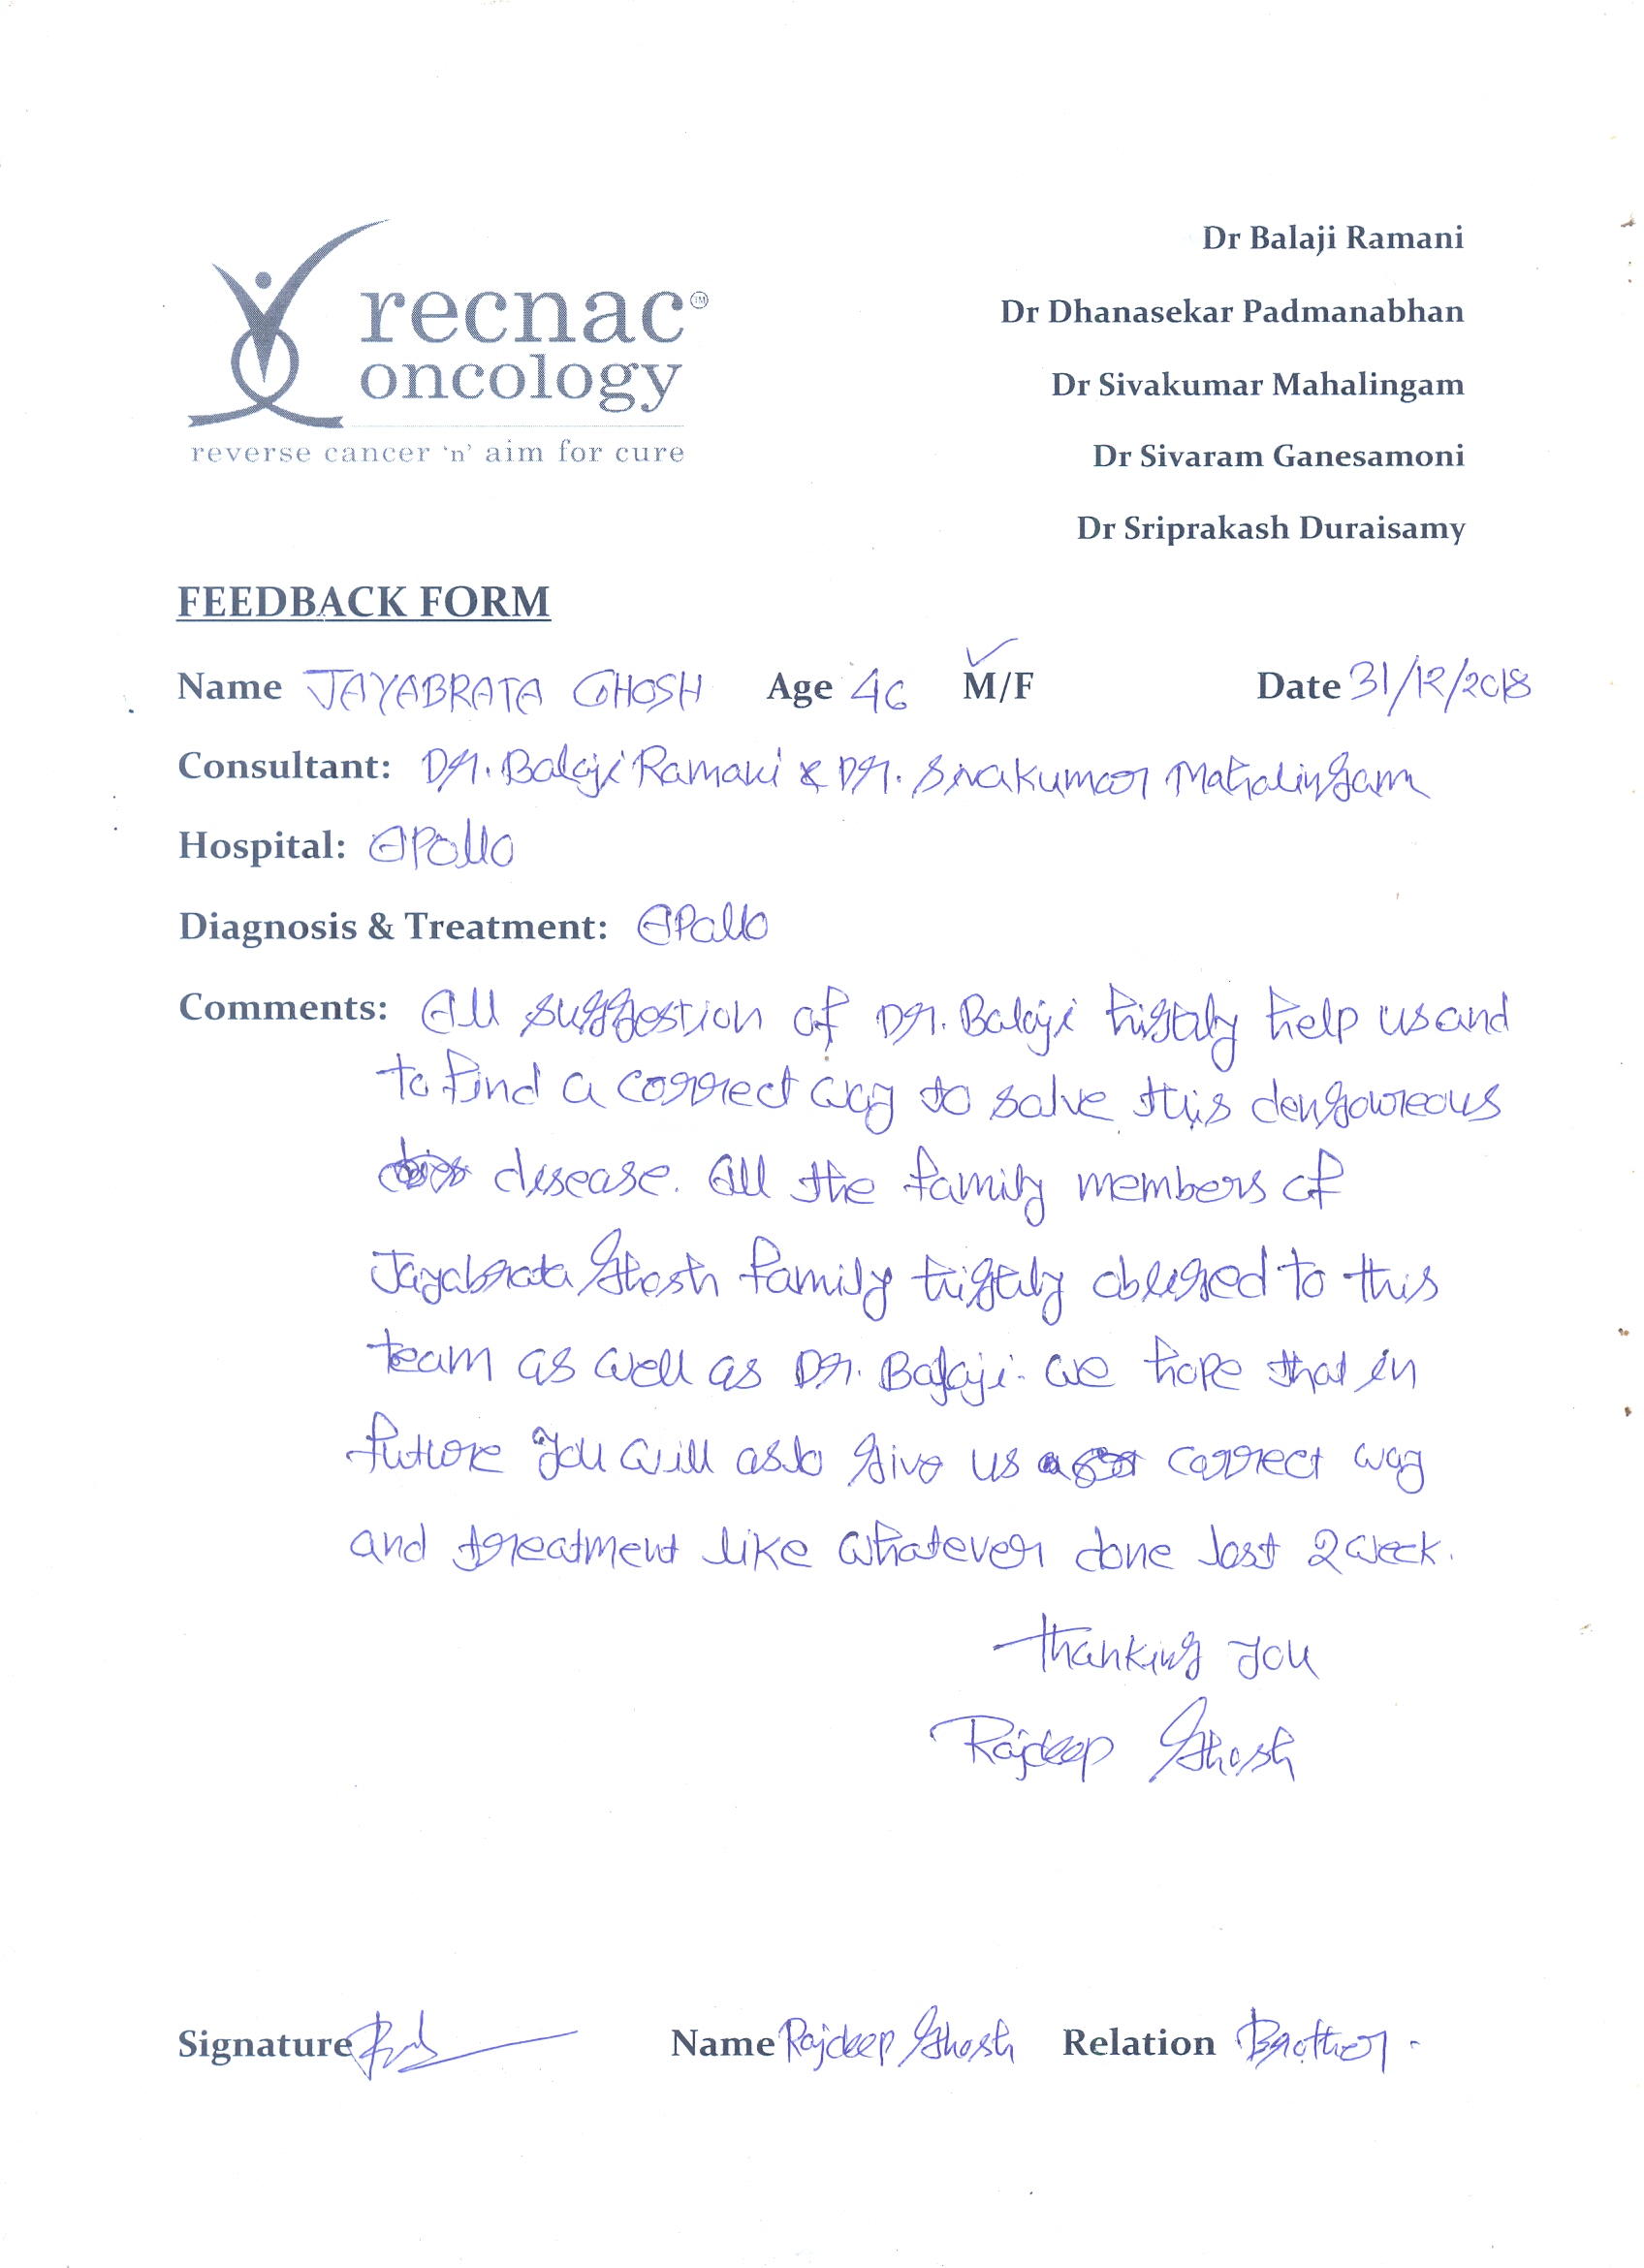 recnac
oncology
reverse cancer 'n' aim for cure
Dr Balaji Ramani
Dr Dhanasekar Padmanabhan
Dr Sivakumar Mahalingam
Dr Sivaram Ganesamoni
Dr Sriprakash Duraisamy
FEEDBACK FORM
Name JAYABRATA GHOSH Age 46 M/F Date 31/12/2018
Consultant: Dr. Balaji Ramani & Dr. Sivakumar Mahalingam
Hospital: Apollo
Diagnosis & Treatment: Apollo
Comments: All suggestion of Dr. Balaji highly help us and
to find a correct way to solve this
disease. All the family members of
Jayabrata Ghosh family highly obliged to this
team as well as Dr. Balaji. We hope that in
future you will give us correct way
and treatment like whatever done last 2 week.
Thanking you
Rajdeep Ghosh
Signature Name Rajdeep Ghosh Relation Brother.